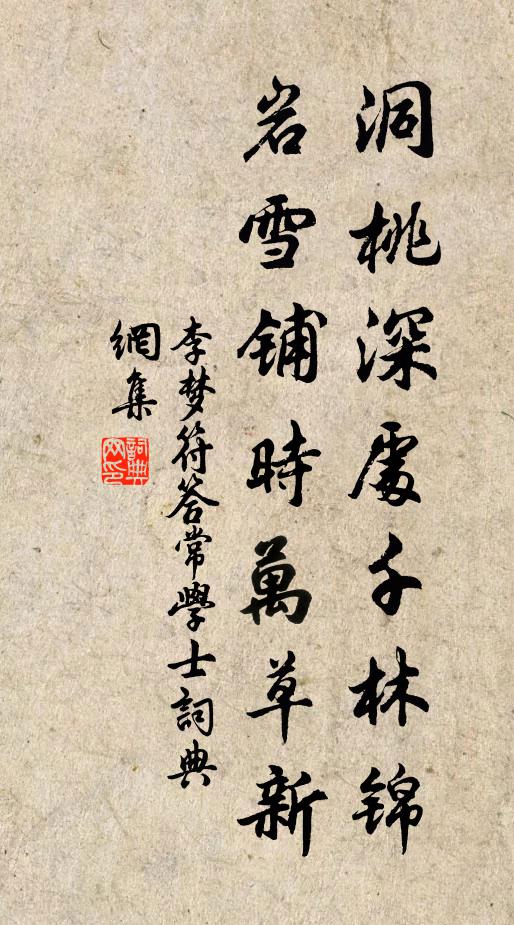 洞桃深處千林锦
岩雪铺時萬草新
李梦符答常學士詞典
網集
詞典網印